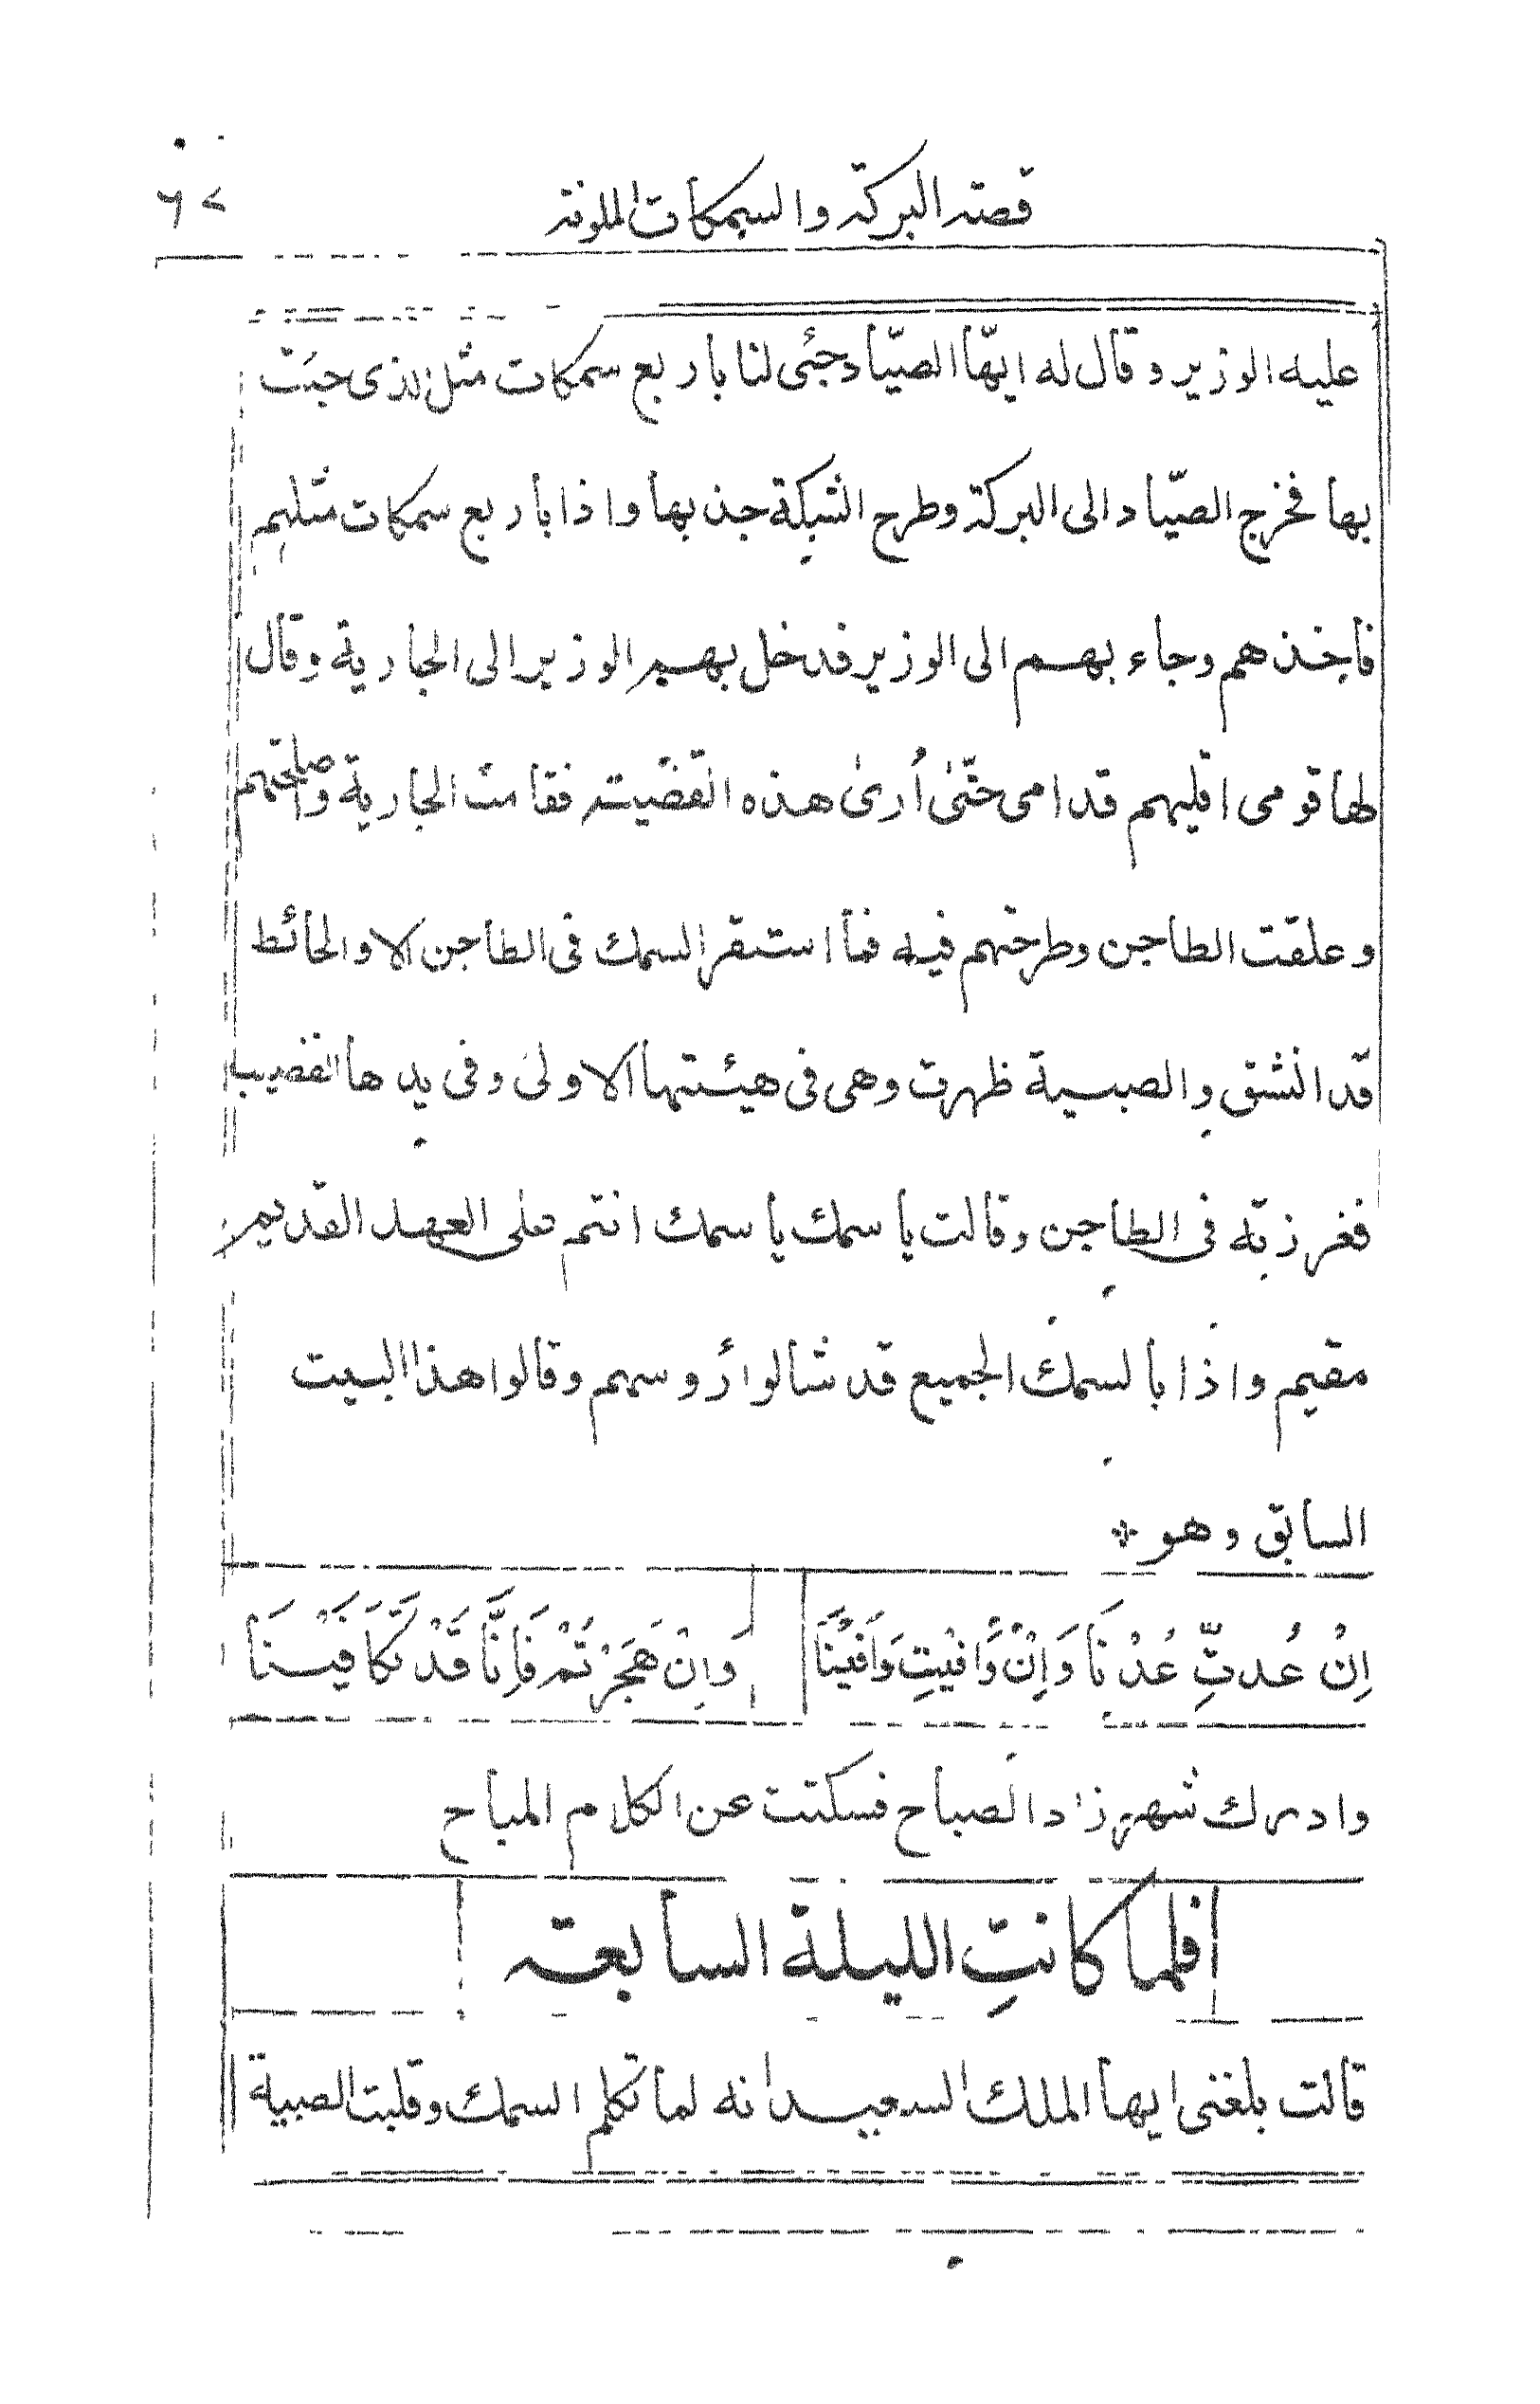 قصة البركة والسمكات الملونة
عليه الوزير وقال له ايّها الصيّاد جئى لنا باربع سمكات مثل الذى جبت
بها فخرج الصيّاد الى البركة وطرح الشبكة جذبها واذا باربع سمكات مثلهم
فاخذهم وجاء بهم الى الوزير فدخل بهم الوزير الى الجارية وقال
لها قومى اقليهم قدامى حتّى أرى هذه القضيته فقامت الجارية واصلحتهم
وعلقت الطاجن وطرحتهم فيه فما استقر السمك فى الطاجن الا والحائط
قد انشق والصبية ظهرت وهى فى هيئتها الاولى وفى يدها القضيب
فغرزته فى الطاجن وقالت يا سمك يا سمك انتم على العهد القديم
مقيم واذا بالسمك الجميع قد شالوا أروسهم وقالوا هذا البيت
السابق وهو *
اِنْ عُدتِّ عُدْنَا وَاِنْ وَافْيتِ وَافَيْنَا وَاِنْ هَجَرْتُمْ فَاِنَّا قَدْ تَكَافَيْنَا
وادرك شهرزاد الصباح فسكتت عن الكلام المباح
فلما كانتِ الليلة السابعة
قالت بلغنى ايها الملك السعيد انه لما تكلم السمك وقلبت الصبية